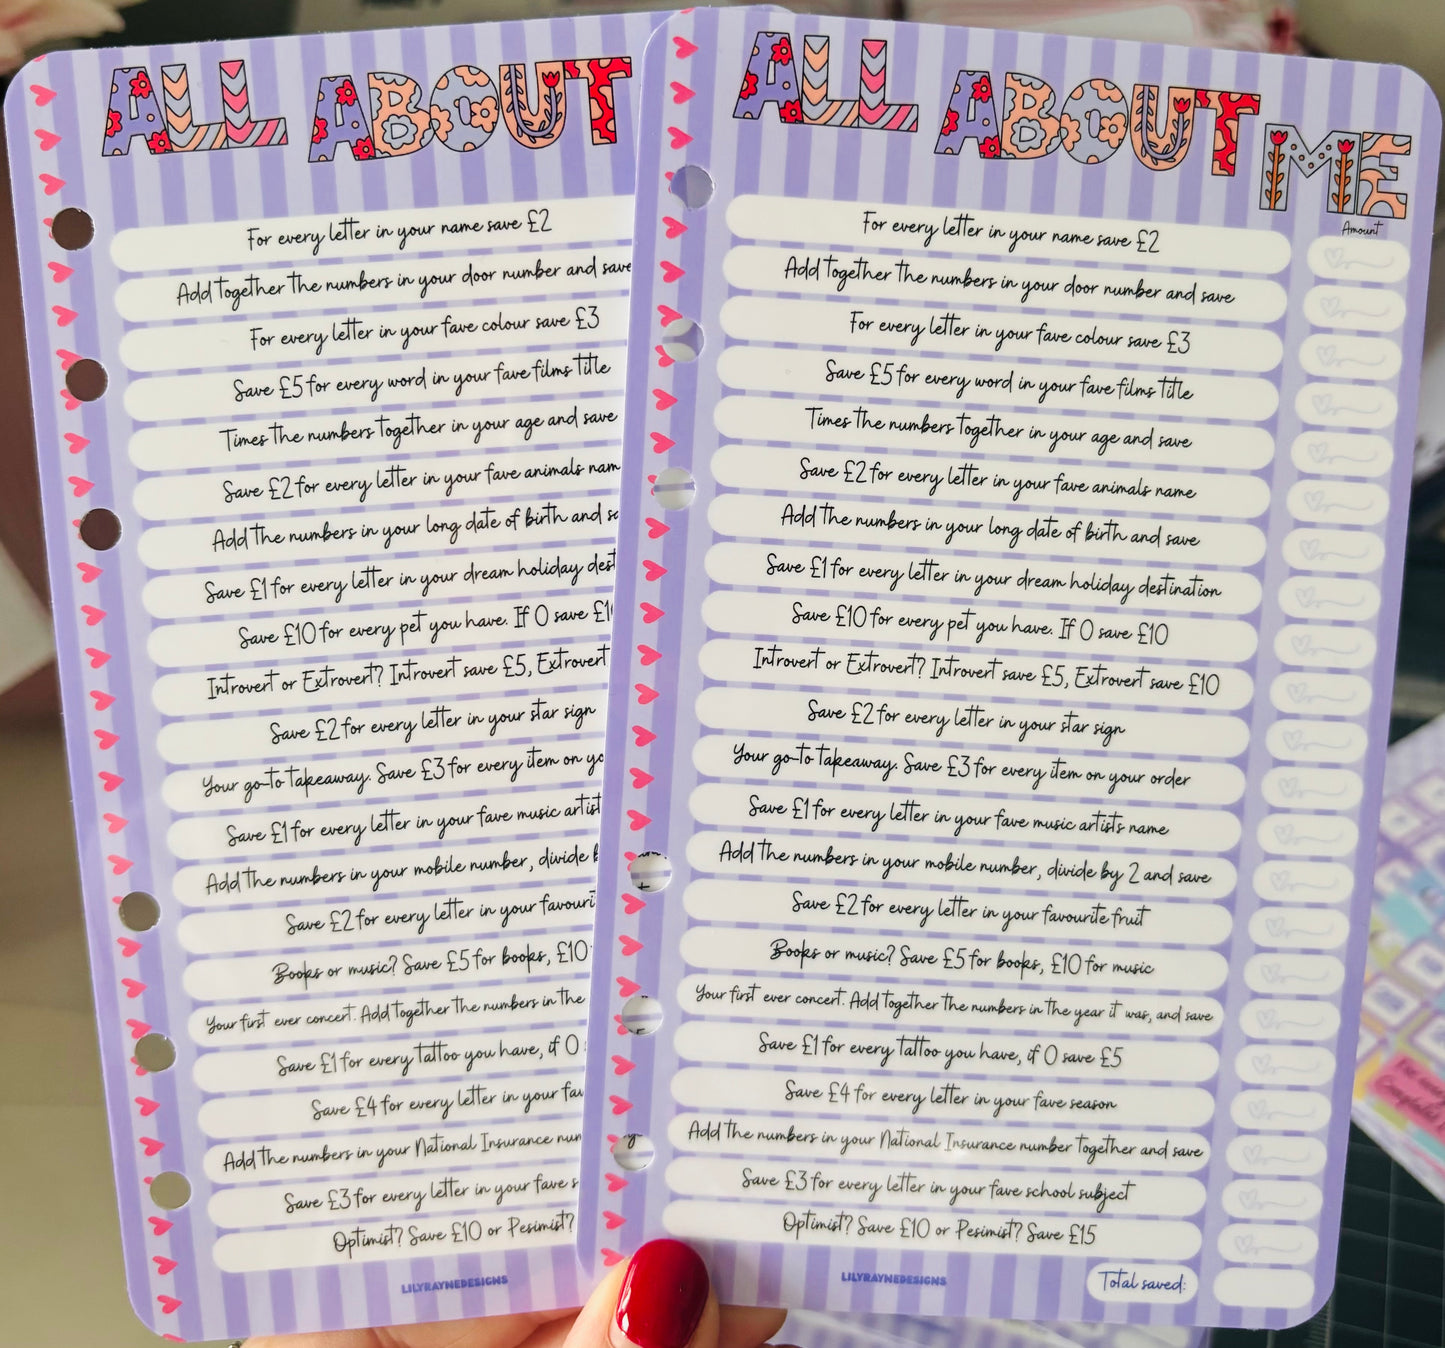 ALL ABOUT
For every letter in your name save £2
Add together the numbers in your door number and save
For every letter in your fave colour save £3
Save £5 for every word in your fave films title
Times the numbers together in your age and save
Save £2 for every letter in your fave animals nam
Add the numbers in your long date of birth and
Save £1 for every letter in your dream holiday dest
Save £10 for every pet you have. If 0 save £1
Introvert or Extrovert? Introvert save £5, Extrovert
Save £2 for every letter in your star sign
Your go-to takeaway. Save £3 for every item on yo
Save £1 for every letter in your fave music artist
Add the numbers in your mobile number, divide
Save £2 for every letter in your favouri
Books or music? Save £5 for books, £10
Your first ever concert. Add together the numbers in the
Save £1 for every tattoo you have, if 0
Save £4 for every letter in your fav
Add the numbers in your National Insurance num
Save £3 for every letter in your fave s
Optimist? Save £10 or Pesimist?
LILYRAYNEDESIGNS
ALL ABOUT ME
Amount
For every letter in your name save £2
Add together the numbers in your door number and save
For every letter in your fave colour save £3
Save £5 for every word in your fave films title
Times the numbers together in your age and save
Save £2 for every letter in your fave animals name
Add the numbers in your long date of birth and save
Save £1 for every letter in your dream holiday destination
Save £10 for every pet you have. If 0 save £10
Introvert or Extrovert? Introvert save £5, Extrovert save £10
Save £2 for every letter in your star sign
Your go-to takeaway. Save £3 for every item on your order
Save £1 for every letter in your fave music artists name
Add the numbers in your mobile number, divide by 2 and save
Save £2 for every letter in your favourite fruit
Books or music? Save £5 for books, £10 for music
Your first ever concert. Add together the numbers in the year it was, and save
Save £1 for every tattoo you have, if 0 save £5
Save £4 for every letter in your fave season
Add the numbers in your National Insurance number together and save
Save £3 for every letter in your fave school subject
Optimist? Save £10 or Pesimist? Save £15
LILYRAYNEDESIGNS
Total saved: